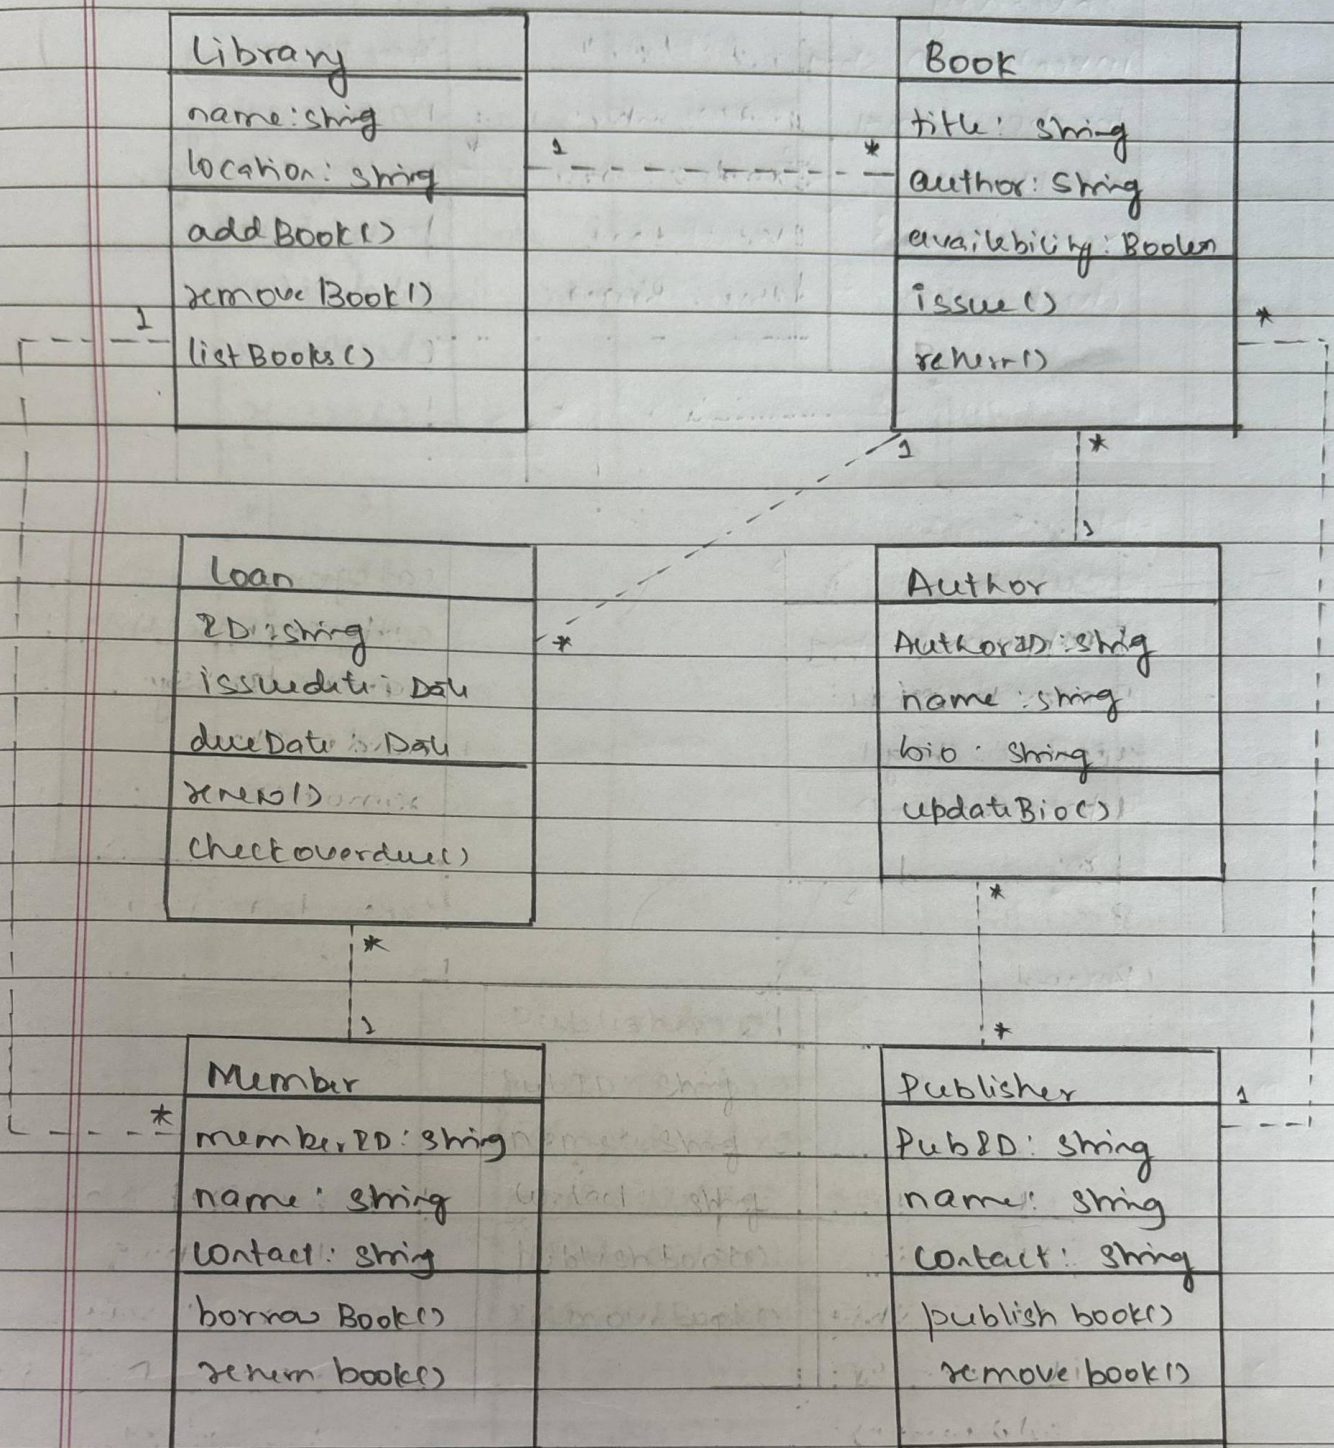 Library
name: string
location: string
addBook()
remove Book()
listBooks()
1
1
*
Book
title: string
author: String
availability: Boolen
issue()
return()
*
1
*
1
Loan
ID: string
issuedate: Date
dueDate: Date
renew()
checkoverdue()
*
*
1
Author
AuthorID: string
name: string
bio: string
updateBio()
*
*
Member
memberID: string
name: string
contact: string
borrow Book()
return book()
*
Publisher
PubID: string
name: string
contact: string
publish book()
remove book()
1